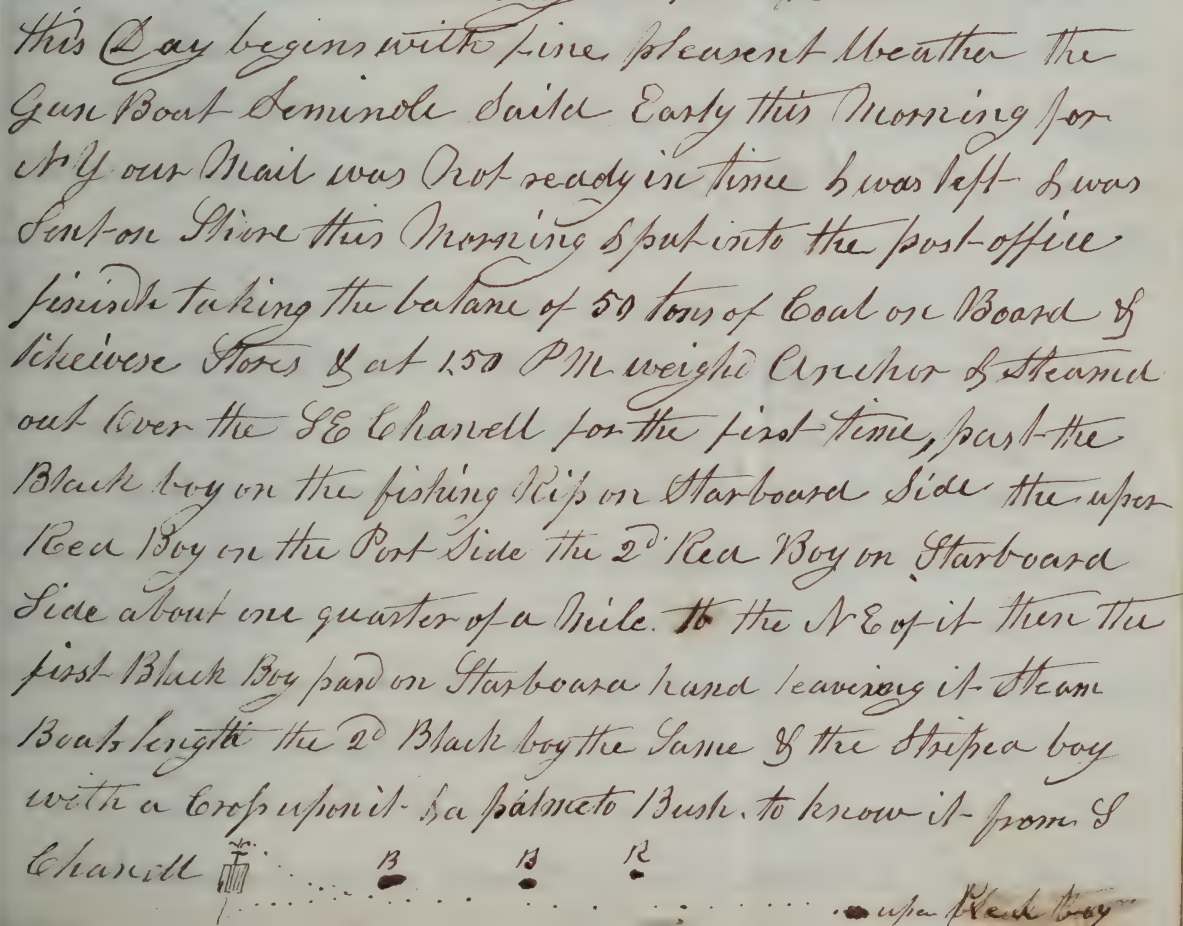 this Day begins with fine pleasent Weather the
Gun Boat Seminole Saild Early this Morning for
N Y our Mail was Not ready in time & was left & was
Sent on Shore this Morning & put into the post office
finisth taking the balane of 50 tons of Coal on Board &
likewise Stores & at 1.50 PM weighd Anchor & Steamd
out Over the SE Chanell for the first time, past the
Black boy on the fishing Rip on Starboard Side the uper
Red Boy on the Port Side the 2d Red Boy on Starboard
Side about one quarter of a Mile. to the N E of it then the
first Black Boy pasd on Starboard hand leaveing it Steam
Boats length the 2d Black boy the Same & the Striped boy
with a Cross upon it & a palmeto Bush. to know it from S
Chanell B B R
uper Black boy